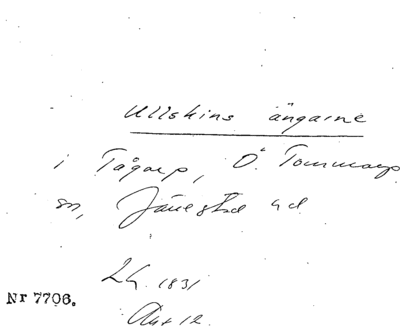 Ullskins ängarne
i Tågarp, Ö. Tommarp
sn, Järrestad hd
LH. 1831
Akt 12.
Nr 7706.